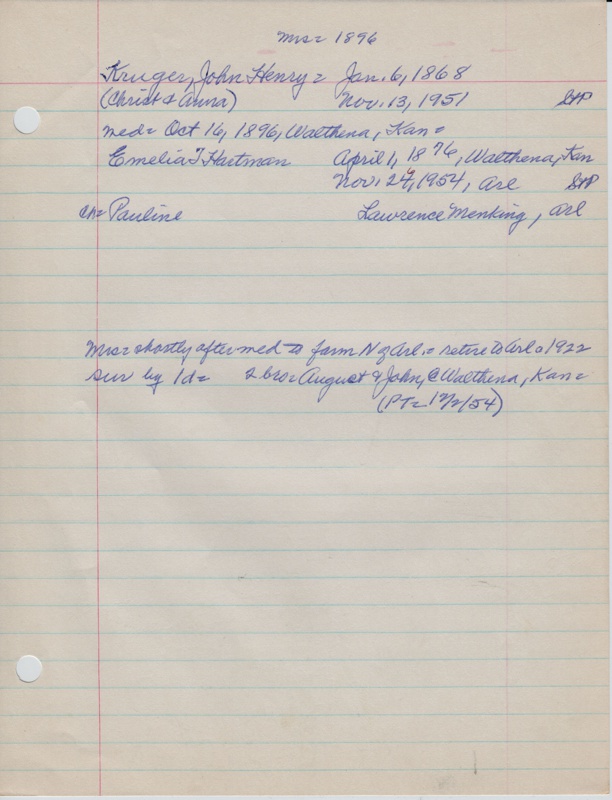 mrs= 1896
Kruger, John Henry= Jan. 6, 1868
(Christ & Anna) Nov. 13, 1951 StP
med= Oct 16, 1896, Walthena, Kan=
Emelia T Hartman April 1, 1876, Walthena, Kan
Nov. 24, 1954, Arl StP
ch= Pauline Lawrence Menking, Arl
mrs= shortly after med to farm N of Arl.= retire to Arl= 1922
sur by 1d= 2 bro= August & John, @ Walthena, Kan=
(PT= 12/2/54)